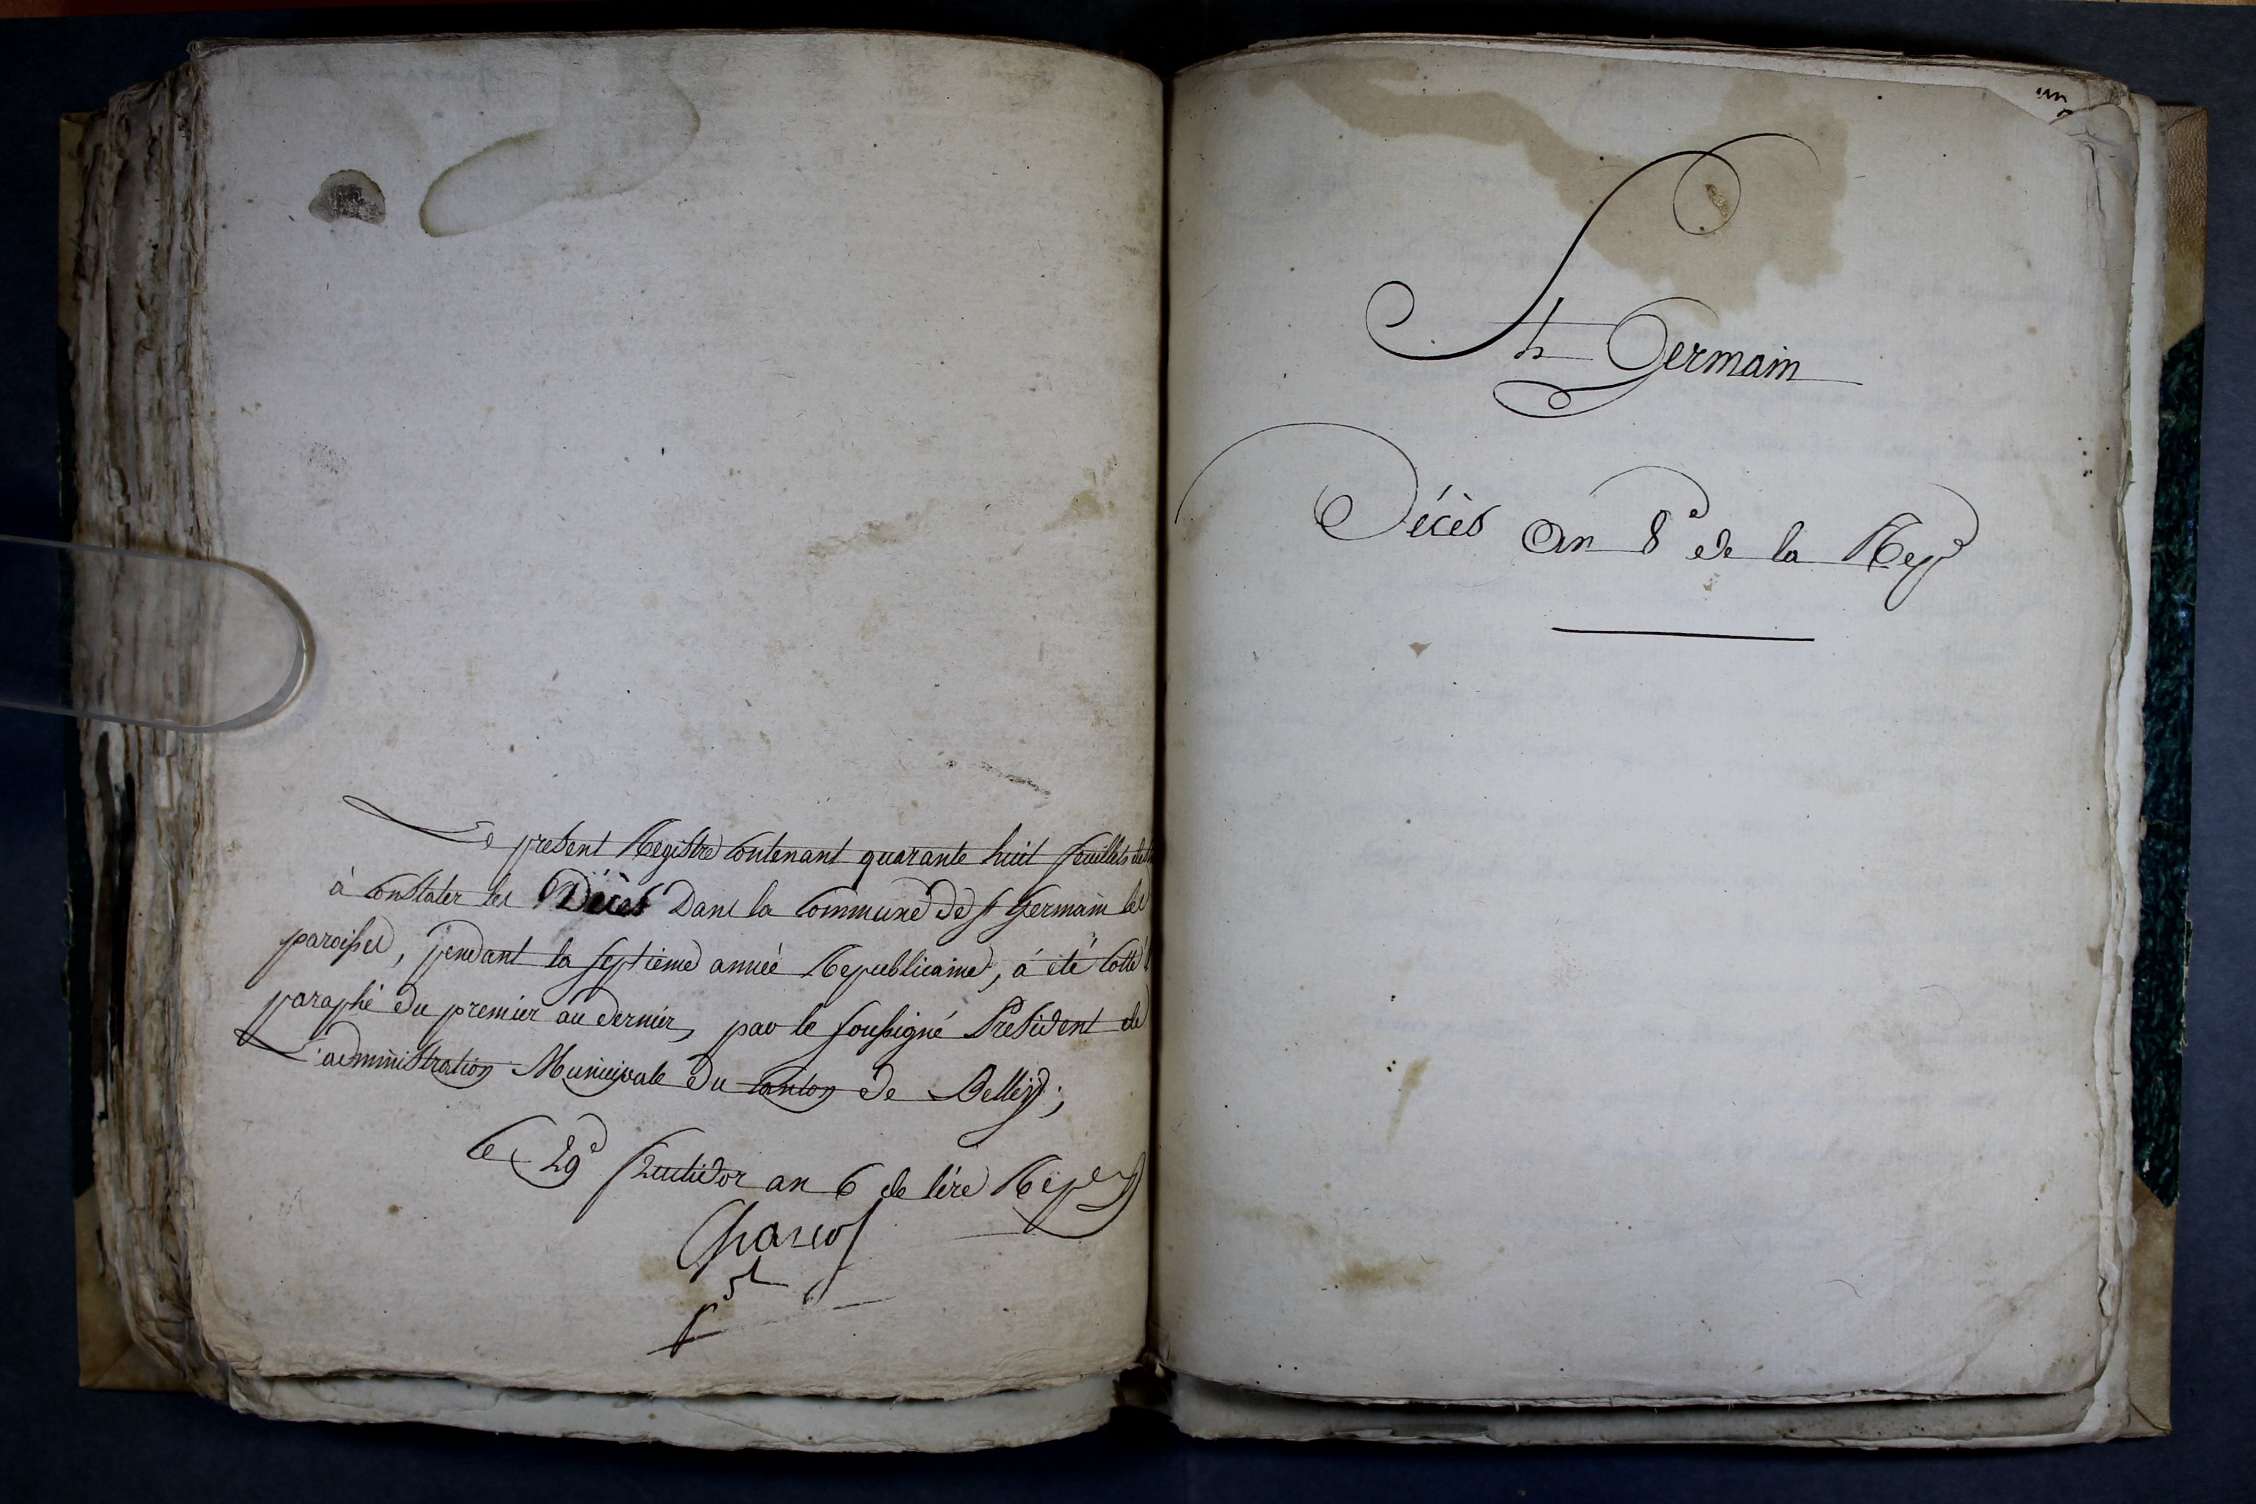 Le présent Registre contenant quarante huit feuillets
à constater les Décès Dans la Commune de St Germain les
paroisses, pendant la septieme année Republicaine, à été cotté &
paraphé du premier au dernier, par le soussigné President de
L'administration Municipale du Canton de Belley;
le 29e fructidor an 6 de l'ére Repe
pst
un
St Germain
Décès an 8e de la Repe